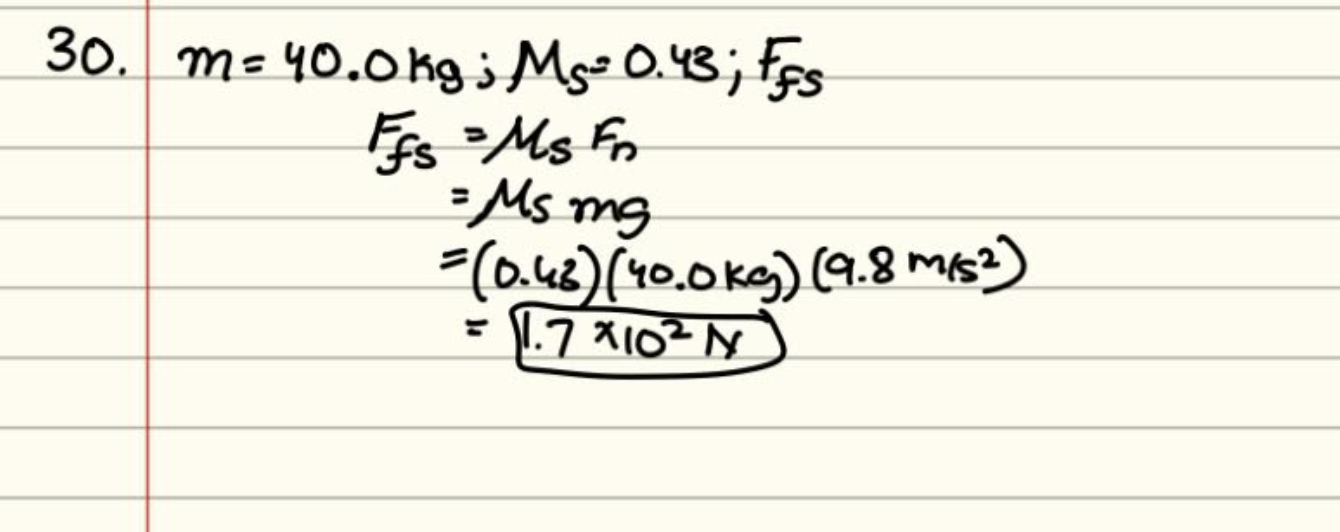 30. m = 40.0 kg ; μs = 0.43 ; Ffs
Ffs = μs Fn
= μs mg
= (0.43)(40.0 kg)(9.8 m/s²)
= 1.7 × 10² N